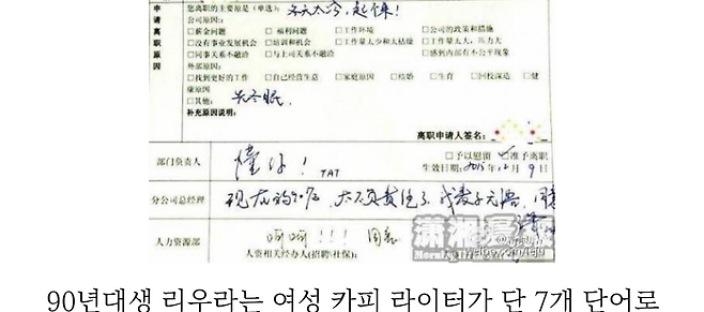 申请离职原因
您离职的主要原是(单选): 冬天太冷,起不来!
公司原因:
□薪金问题 □福利问题 □工作环境 □公司的政策和措施
□没有事业发展机会 □培训和机会 □工作量太少和太枯燥 □工作量太大,压力大
□同事关系不融洽 □与上司关系不融洽 □感到内部有不公平现象
外部原因:
□找到更好的工作 □自己经营生意 □家庭原因 □结婚 □生育 □回校深造 □健康原因
□其他: 冬眠.
补充原因说明:
离职申请人签名:
部门负责人 懂你! TAT □予以慰留 准予离职
生效日期: 2015.12月9日
分公司总经理 现在的90后,太不负责任了,
人力资源部 呵呵!!! 同意
人资相关经办人(招聘/社保):
潇湘晨报
90년대생 리우라는 여성 카피 라이터가 단 7개 단어로